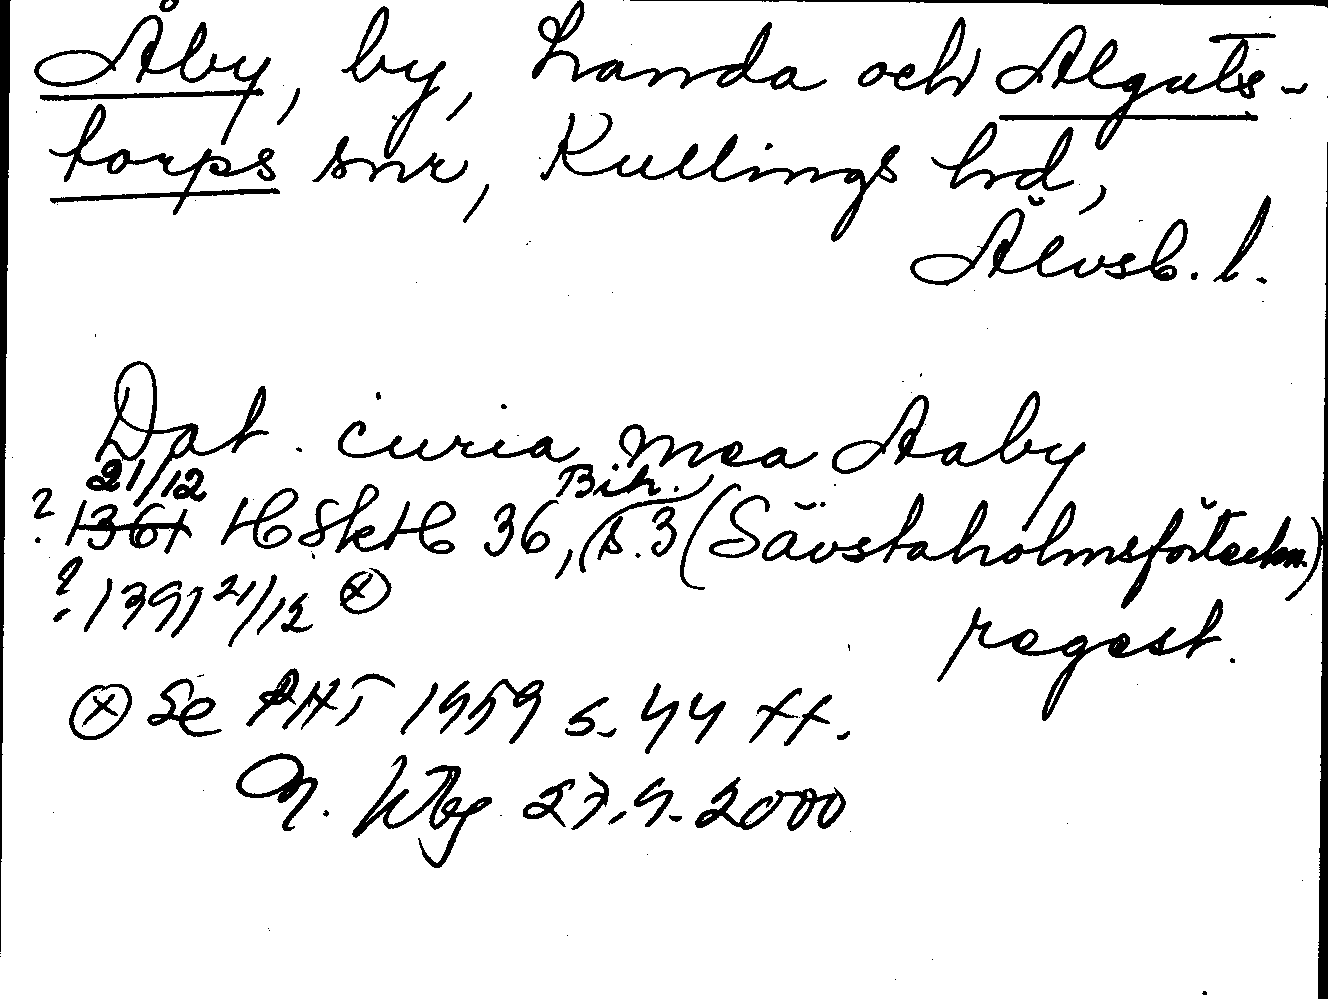 Åby, by, Landa och Alguts-
torps snr, Kullings hrd,
Älvsb. l.
Dat. curia mea Aaby
21/12 Bih.
? 1361 HSkH 36, s. 3 (Sävstaholmsförteckn.)
? 1391 21/12 ⓧ
regest.
ⓧ Se PHT 1959 s. 44 ff.
27.9.2000